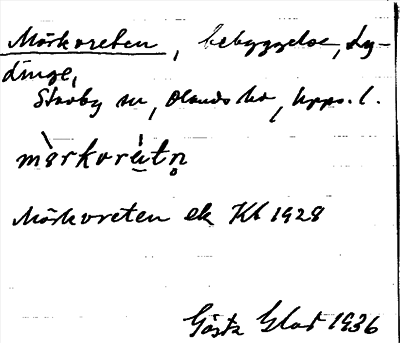 Mörkvreten, bebyggelse, Ly-
dinge,
Stavby sn, Olands hd, Upps. l.
mörkvrètn̥
Mörkvreten ek Kbl 1928
Gösta 1936